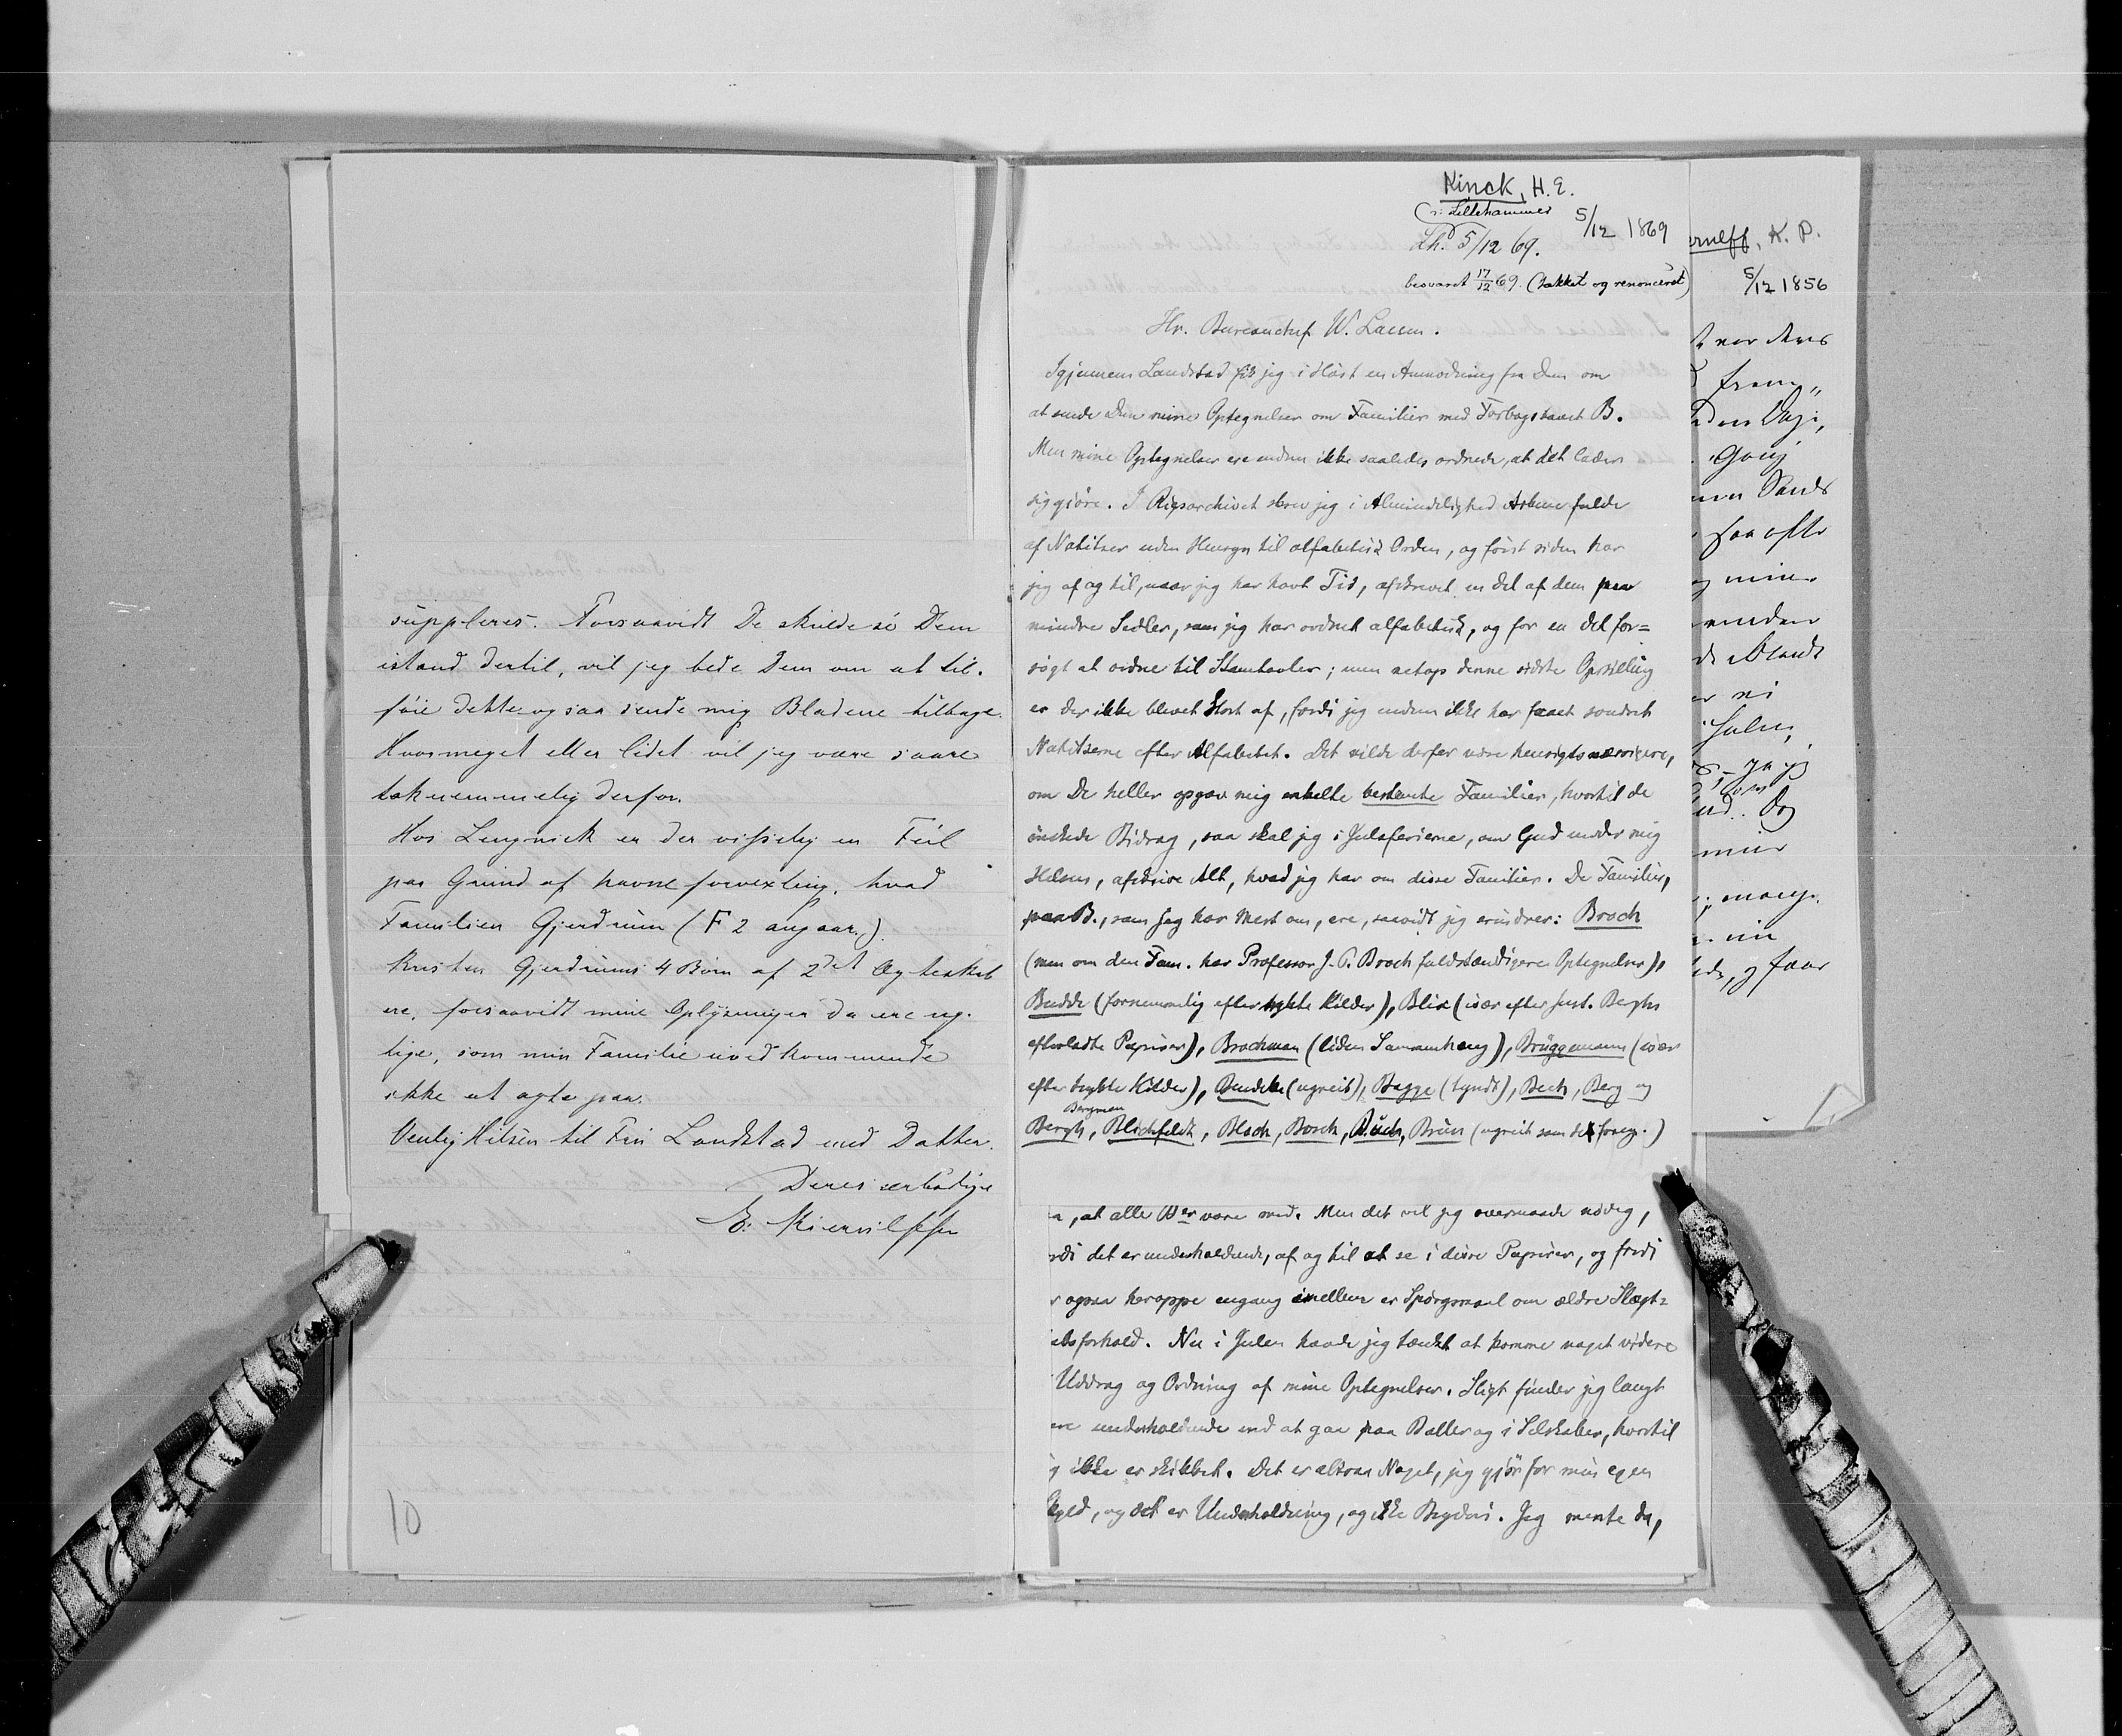 suppleres. Forsaavidt De skulde se Dem
istand dertil, vil jeg bede Dem om at til-
føie dette og saa sende mig Bladene tilbage.
Hvormeget eller lidet vil jeg være saare
taknemmelig derfor.
Hos Lengnick er der visselig en Feil
paa Grund af Navneforvexling, hvad
Familien Gjerdrum (F 2 angaar.)
Kristen Gjerdrums 4 Børn af 2det Ægteskab
ere, forsaavidt mine Oplysninger da ere rig-
tige, som min Familie uvedkommende
ikke at agte paa.
Venlig Hilsen til Fru Landstad med Datter.
Deres ærbødige
E.
10
Kinck, H. E.
(ɔ: Lillehammer
5/12 1869
Lh. 5/12 69.
besvaret 17/12 69. (takket og renonceret)
Hr. Bureauchef W. Lassen.
Igjennem Landstad fik jeg i Høst en Anmodning fra Dem om
at sende Dem mine Optegnelser om Familier med Forbogstavet B.
Men mine Optegnelser ere endnu ikke saaledes ordnede, at det lader
sig gjøre. I Rigsarchivet skrev jeg i Almindelighed Arkene fulde
af Notitser uden Hensyn til alfabetisk Orden, og først siden har
jeg af og til, naar jeg har havt Tid, afskrevet en Del af dem paa
mindre Sedler, som jeg har ordnet alfabetisk, og for en Del for=
søgt at ordne til Stamtavler; men netop denne sidste Opstilling
er der ikke blevet Stort af, fordi jeg endnu ikke har faaet sondret
Notitserne efter Alfabetet. Det vilde derfor være hensigtsmæssigere,
om De heller opgav mig enkelte bestemte Familier, hvortil de
ønskede Bidrag, saa skal jeg i Juleferierne, om Gud under mig
Helsen, afskrive Alt, hvad jeg har om disse Familier. De Familier,
paa B., som jeg har Mest om, ere, saavidt jeg erindrer: Broch
(men om den Fam. har Professor J. P. Broch fuldstændigere Optegnelser),
Budde (fornemmelig efter trykte Kilder), Blix (især efter Just. Berghs
efterladte Papirer), Brochman (liden Sammenhæng), Brüggemann (især
efter trykte Kilder), Bendeke (ugreit), Bagge (tyndt), Bech, Berg og
Bergman
Bergh, Blichfeldt, Bloch, Borch, Buch, Brun (ugreit som det foreg.)
, at alle Wer vare med. Men det vil jeg overmaade nødig,
rdi det er underholdende, af og til at se i disse Papirer, og fordi
r ogsaa heroppe engang imellem er Spørgsmaal om ældre Slægt=
absforhold. Nu i Julen havde jeg tænkt at komme noget videre
Uddrag og Ordning af mine Optegnelser. Sligt finder jeg langt
ere underholdende end at gaa paa Baller og i Selskaber, hvortil
g ikke er skikket. Det er altsaa Noget, jeg gjør for min egen
Skyld, og det er Underholdning, og ikke Byrden. Jeg mente da,
ernlff, K. P.
5/12 1856